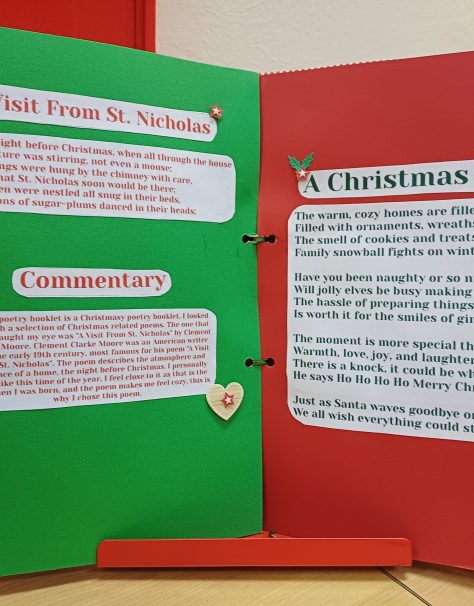 Visit From St. Nicholas
ight before Christmas, when all through the house
ture was stirring, not even a mouse;
ngs were hung by the chimney with care,
hat St. Nicholas soon would be there;
en were nestled all snug in their beds,
ons of sugar-plums danced in their heads;
Commentary
poetry booklet is a Christmasy poetry booklet, I looked
h a selection of Christmas related poems. The one that
aught my eye was "A Visit From St. Nicholas" by Clement
Moore. Clement Clarke Moore was an American writer
he early 19th century, most famous for his poem "A Visit
St. Nicholas". The poem describes the atmosphere and
nce of a home, the night before Christmas. I personally
like this time of the year, I feel close to it as that is the
hen I was born, and the poem makes me feel cozy, this is
why I chose this poem.
A Christmas
The warm, cozy homes are fille
Filled with ornaments, wreaths
The smell of cookies and treats
Family snowball fights on wint
Have you been naughty or so n
Will jolly elves be busy making
The hassle of preparing things
Is worth it for the smiles of gir
The moment is more special th
Warmth, love, joy, and laughter
There is a knock, it could be wh
He says Ho Ho Ho Ho Merry Ch
Just as Santa waves goodbye or
We all wish everything could st